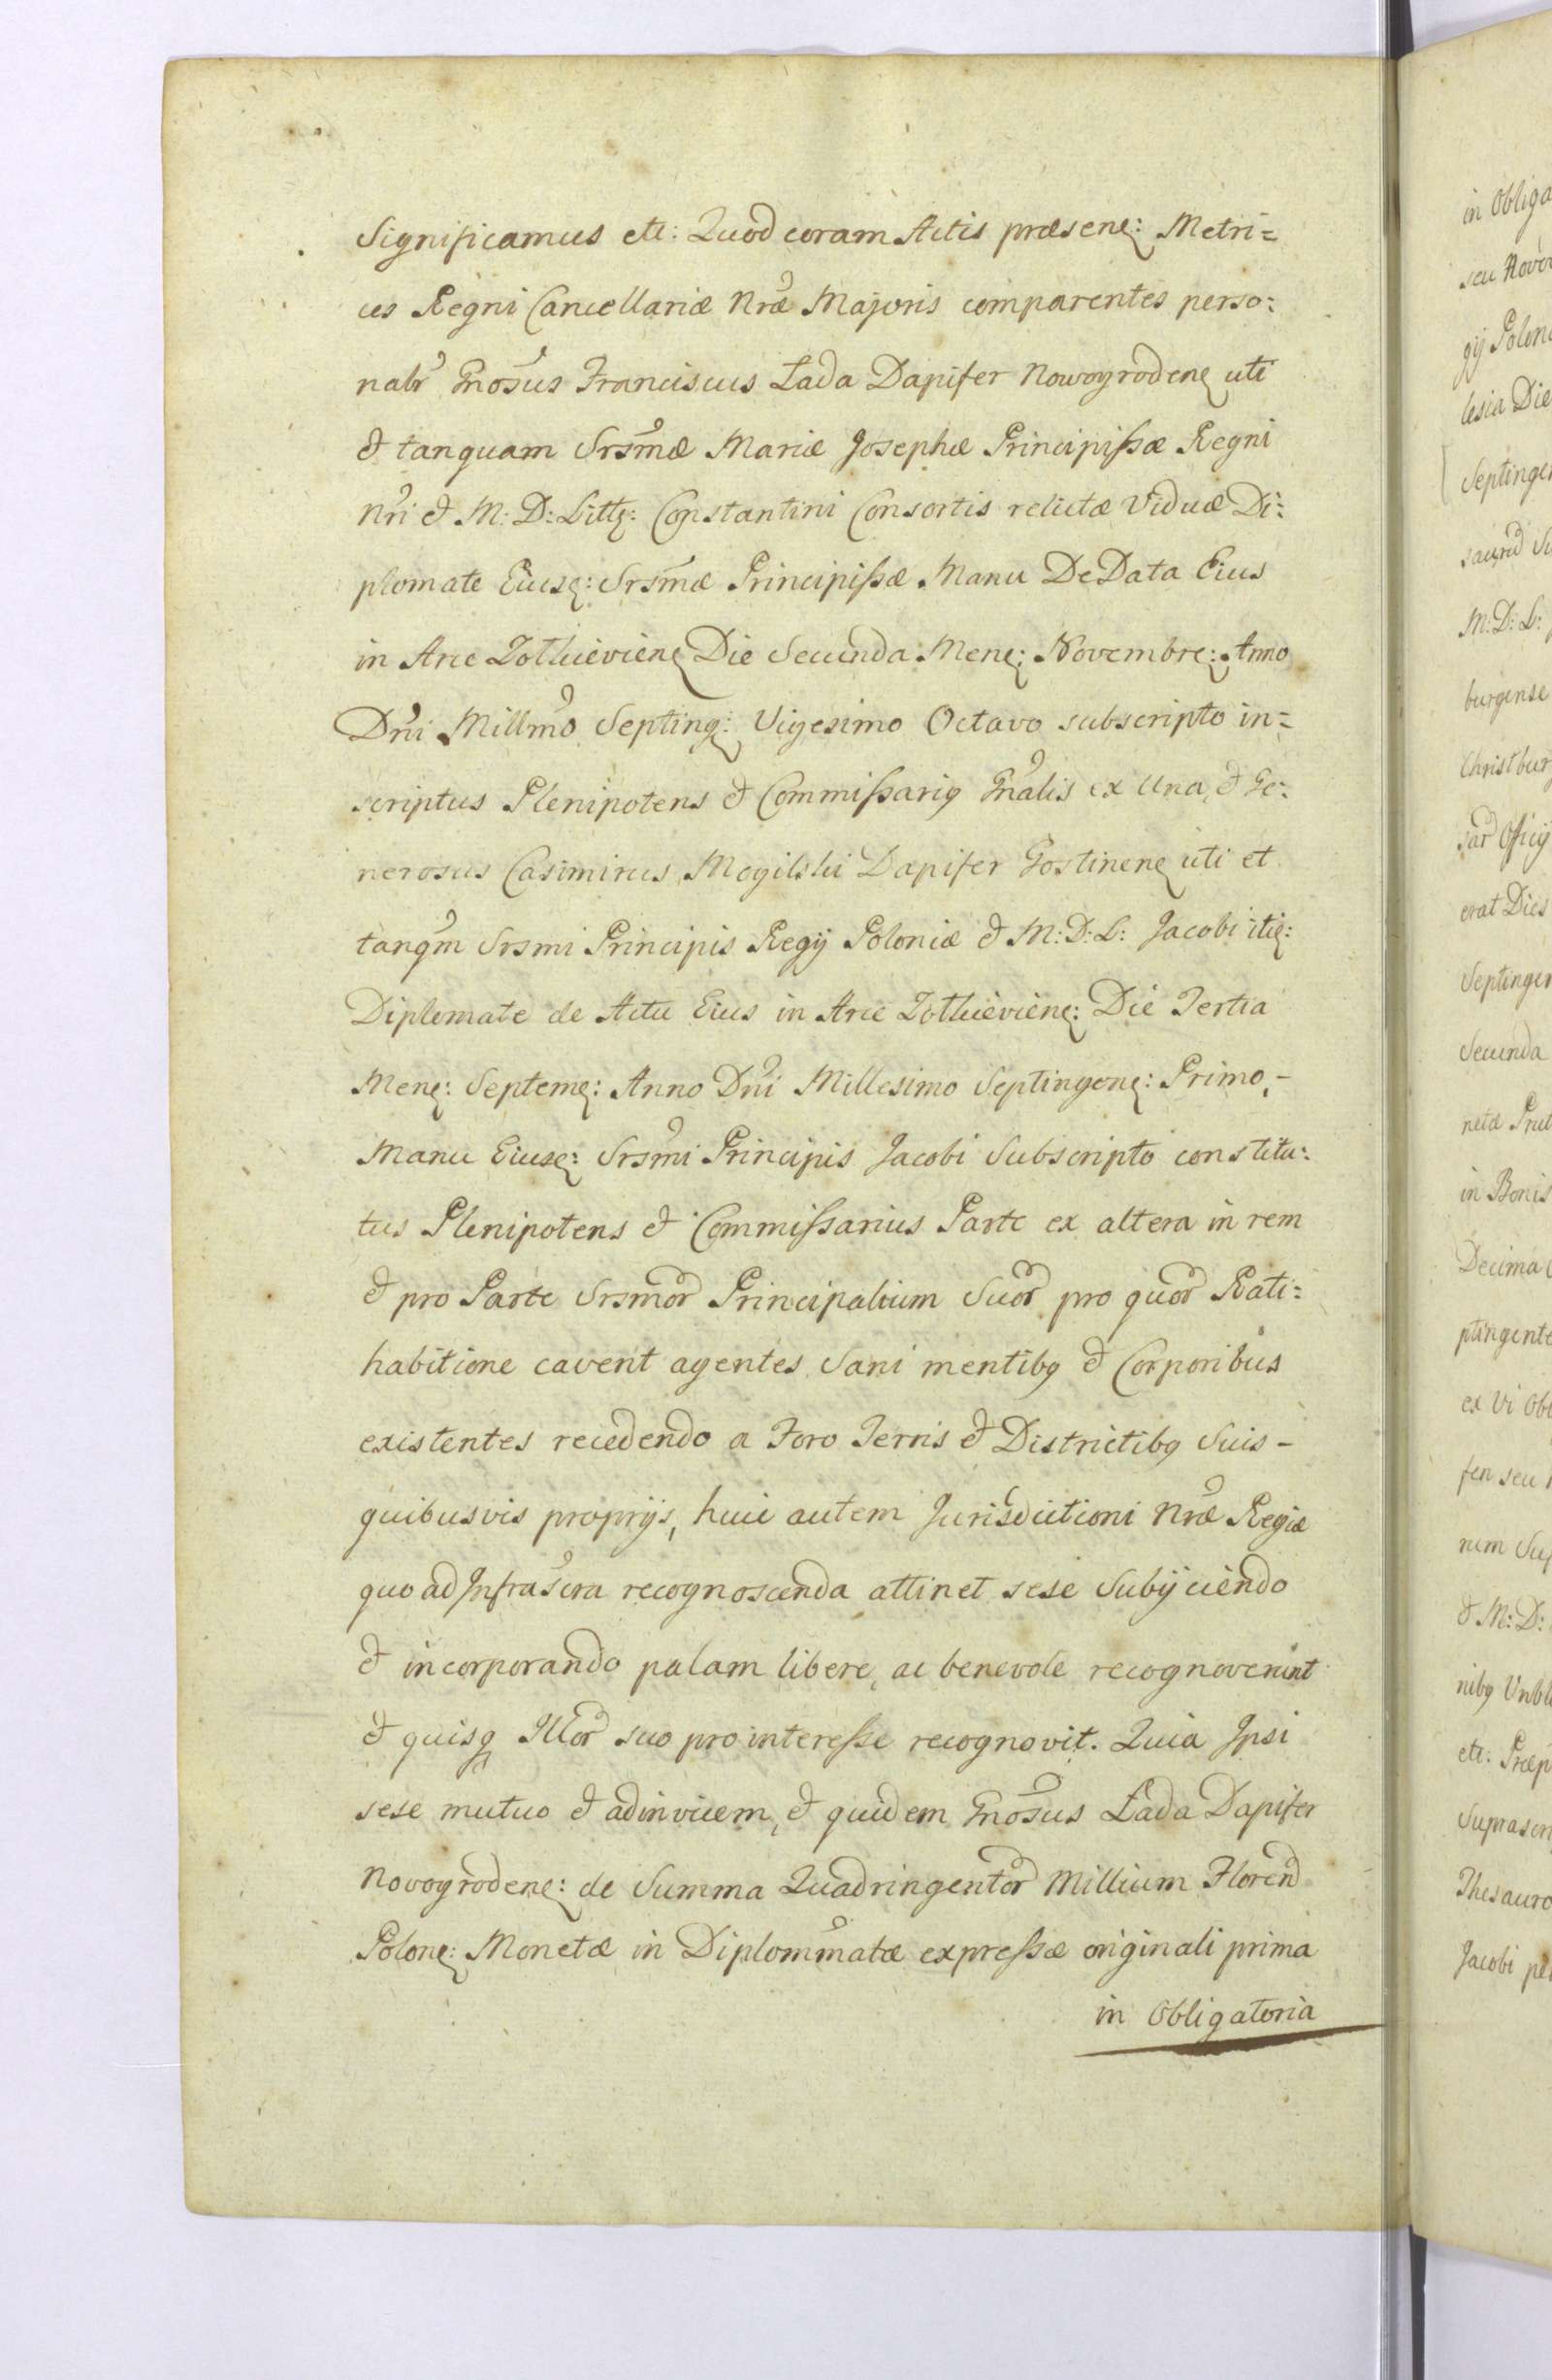 Significamus etc: Quod coram Actis præsenę: Metri=
ces Regni Cancellariæ Nræ Majoris comparentes perso:
nalr Gnosus Franciscus Łada Dapifer Nowogrodenę uti
& tanquam Srsmæ Mariæ Josephæ Principissæ Regni
Nri & M: D: Littę: Constantini Consortis relictæ Viduæ Di:
plomate Eiusę: Srsmæ Principissæ Manu De Data Eius
in Arce Zolkievienę Die Secunda Menę: Novembrę: Anno
Dni Millmo Septingę: Vigesimo Octavo subscripto in=
scriptus Plenipotens & Commissariq Gnalis ex Una, & Ge:
nerosus Casimirus Mogilski Dapifer Gostinenę uti et
tanqm Srsmi Principis Regij Poloniæ & M: D: L: Jacobi itię:
Diplomate de Actu Eius in Arce Zolkievienę: Die Tertia
Menę: Septemę: Anno Dni Millesimo Septingenę: Primo,-
Manu Eiusę: Srsmi Principis Jacobi Subscripto constitu:
tus Plenipotens & Commissarius Parte ex altera in rem
& pro Parte Srsmor Principalium Suor pro quor Rati:
habitione cavent agentes Sani mentibq & Corporibus
existentes recedendo a Foro Terris & Districtibq Suis-
quibusvis proprijs, huic autem Jurisdictioni Nræ Regiæ
quo ad Infrascra recognoscenda attinet sese Subijciendo
& incorporando palam libere, ac benevole recognoverunt
& quisq Illor suo pro interesse recognovit. Quia Ipsi
sese mutuo & adinvicem, & quidem Gnosus Łada Dapifer
Novogrodenę: de Summa Quadringentor Millium Floren
Polonę: Monetæ in Diplommatæ expressæ originali prima
in Obligatoria
in Obliga
gij Polon
lesia Die
Septinge
M: D: L:
burgense
Christbur
erat Dies
Septinge
Secunda
in Bonis
Decima
ptingent
ex Vi Ob
& M: D:
Suprascr
Thesauro
Jacobi pe